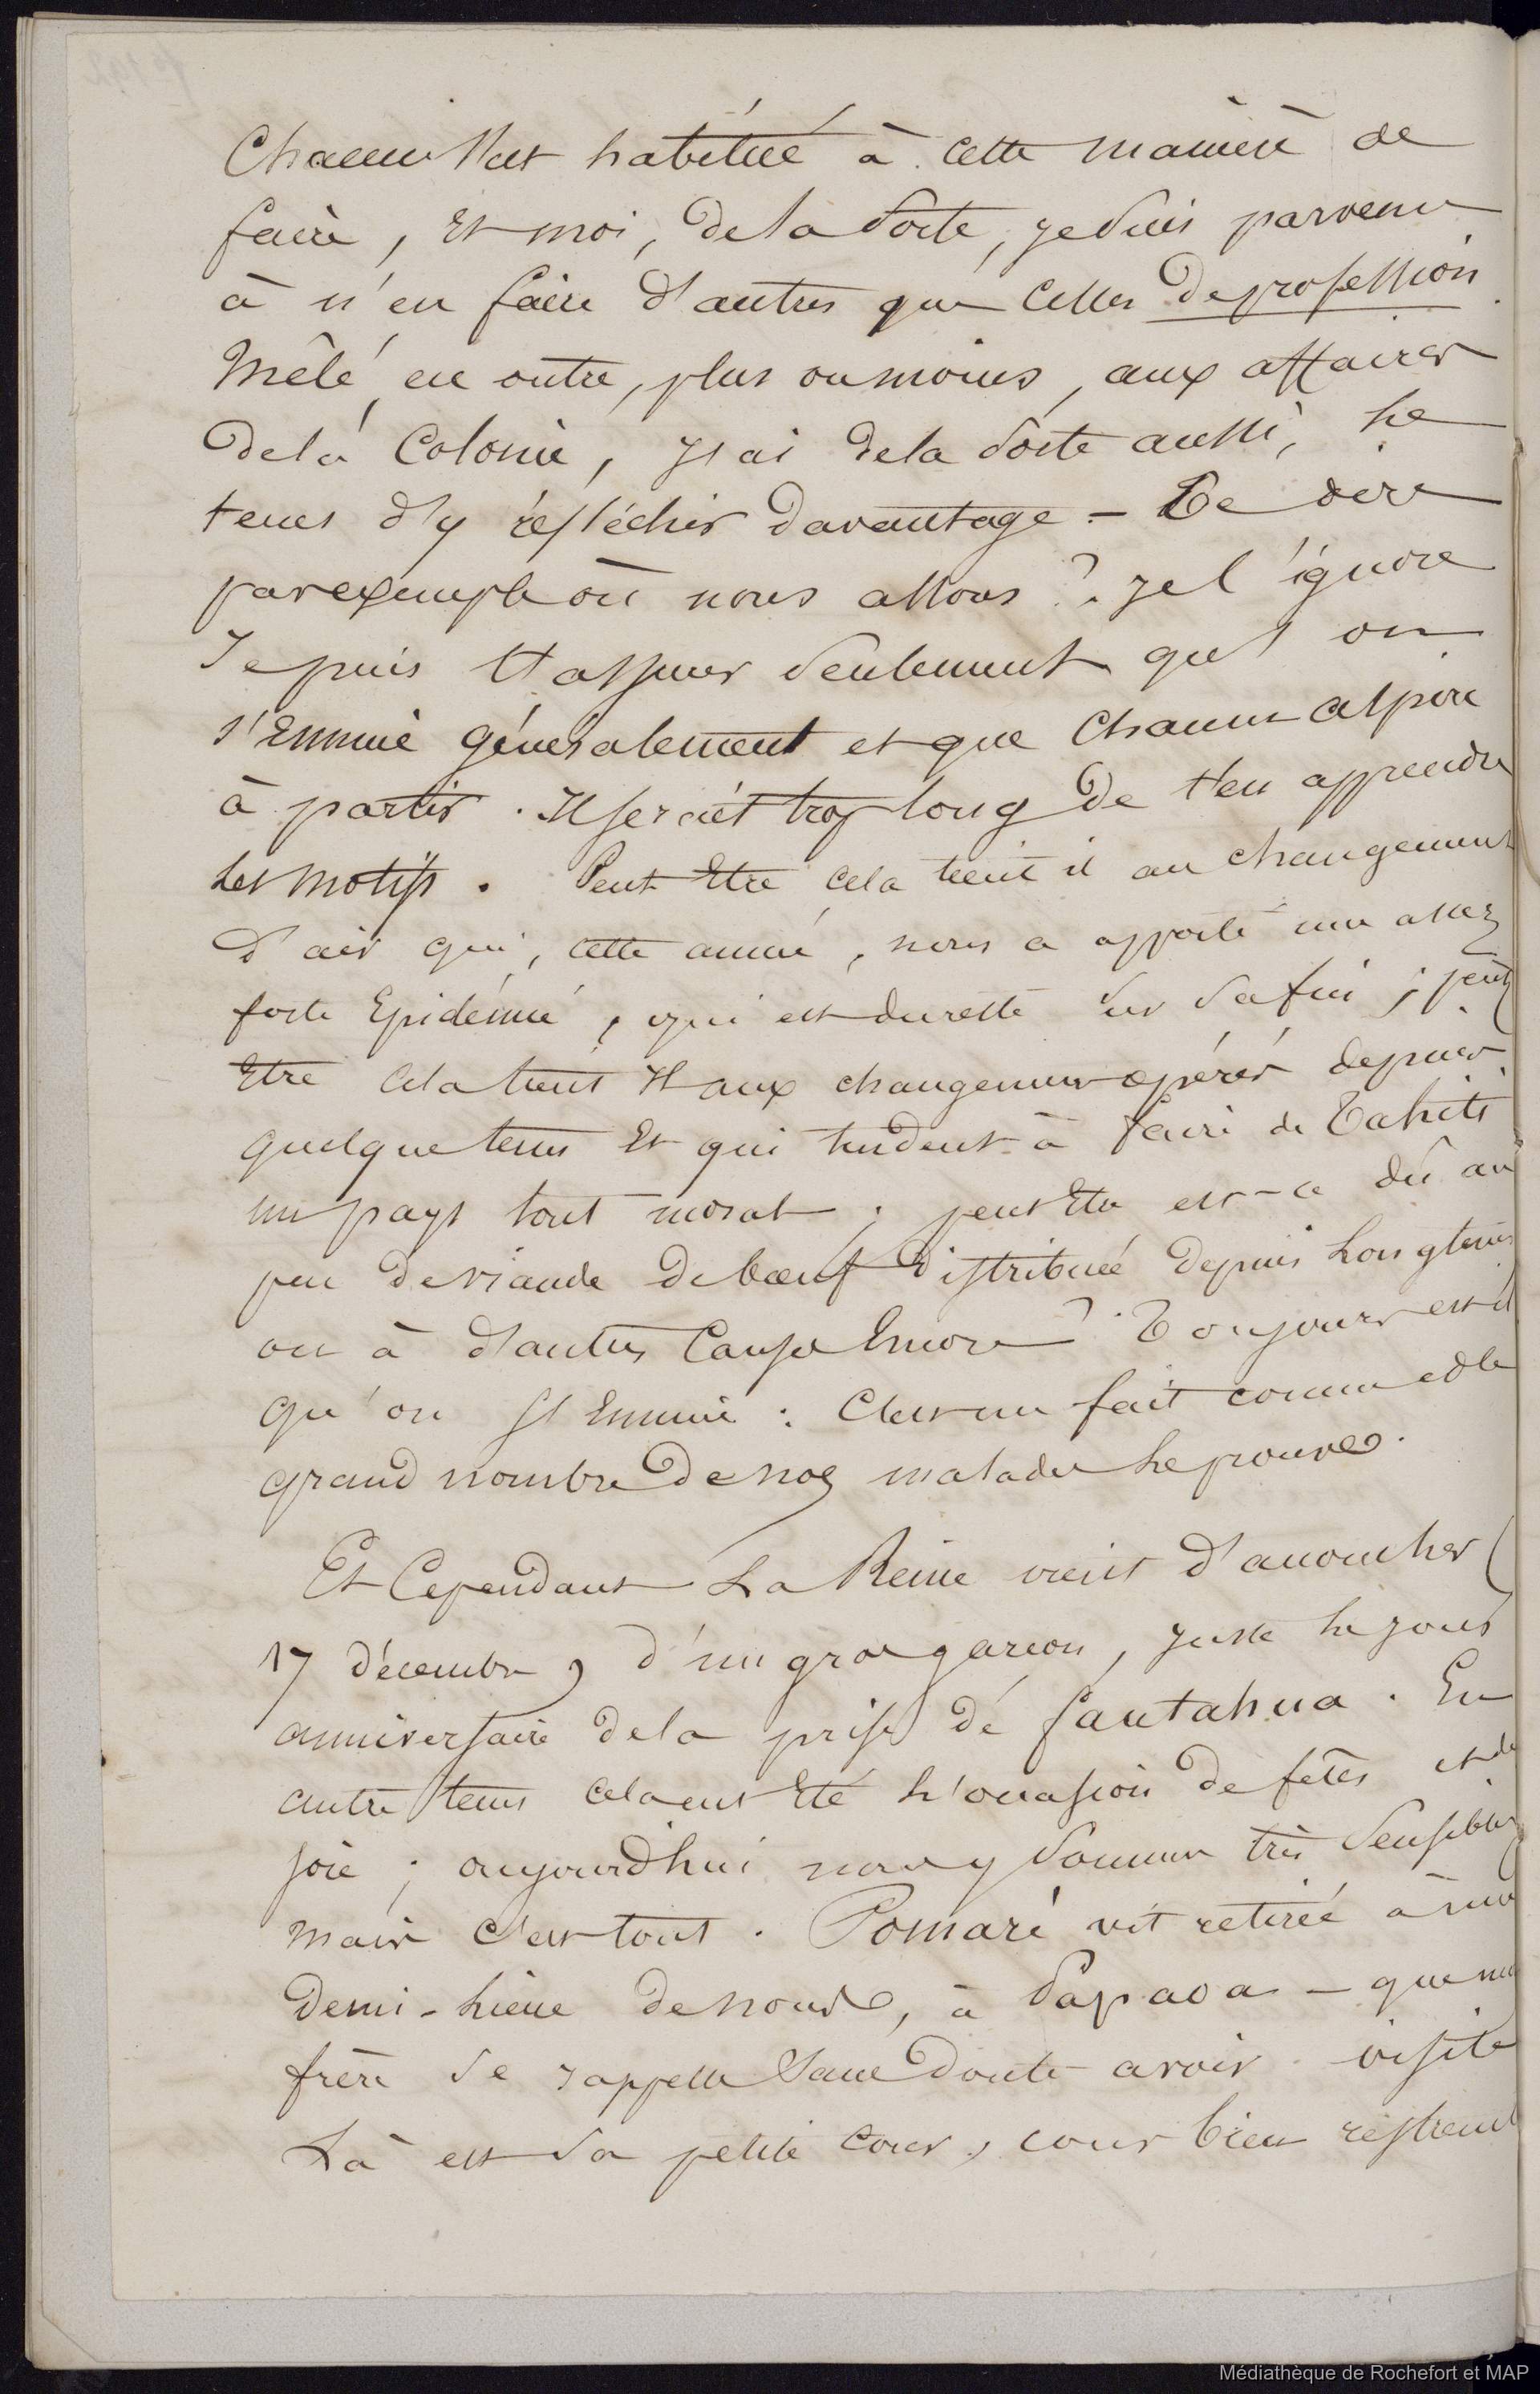 Chacun s'est habitué à cette manière de
faire, et moi, de la sorte, je suis parvenu
à n'en faire d'autres que celles de profession.
Mêlé, en outre, plus ou moins, aux affaires
de la Colonie, j'ai de la sorte aussi, le
tems d'y réfléchir davantage - Te dire
par exemple où nous allons ? je l'ignore
Je puis t'assurer seulement qu'on
s'ennuie généralement et que chacun aspire
à partir. Il serait trop long de t'en apprendre
les motifs. Peut être cela tient il au changement
d'air qui, cette année, nous a apporté une assez
forte Epidémie, qui est du reste sur sa fin ; peut
être cela tient il aux changemens opérés depuis
quelque tems et qui tendent à faire de Tahiti
un pays tout moral ; peut être est-ce dû au
peu de viande de bœuf distribuée depuis longtems
ou à d'autres causes encore ? Toujours est il
qu'on s'ennuie : c'est un fait comme le
grand nombre de nos malades le prouve.
Et cependant La Reine vient d'accoucher (
17 décembre) d'un gros garçon, juste le jour
anniversaire de la prise de fautahua. En
autre tems cela eut été l'occasion de fêtes et de
joie ; aujourd'hui nous y sommes très sensibles
mais c'est tout. Pomaré vit retirée à une
demi-lieue de nous, à Papaoa - que mon
frère se rappelle sans doute avoir visité
Là est sa petite cour, cour bien restreint
Médiathèque de Rochefort et MAP